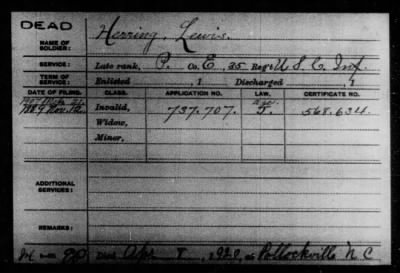 DEAD
NAME OF SOLDIER: Herring, Lewis.
SERVICE: Late rank, P. Co. E, 35 Reg't U S C Inf.
TERM OF SERVICE: Enlisted , 1 Discharged , 1
DATE OF FILING. CLASS. APPLICATION NO. LAW. CERTIFICATE NO.
Invalid, 737.707. J. 568.634
Widow,
Minor,
ADDITIONAL SERVICES:
REMARKS:
Died Apr 8, 1920, at Pollocksville N C